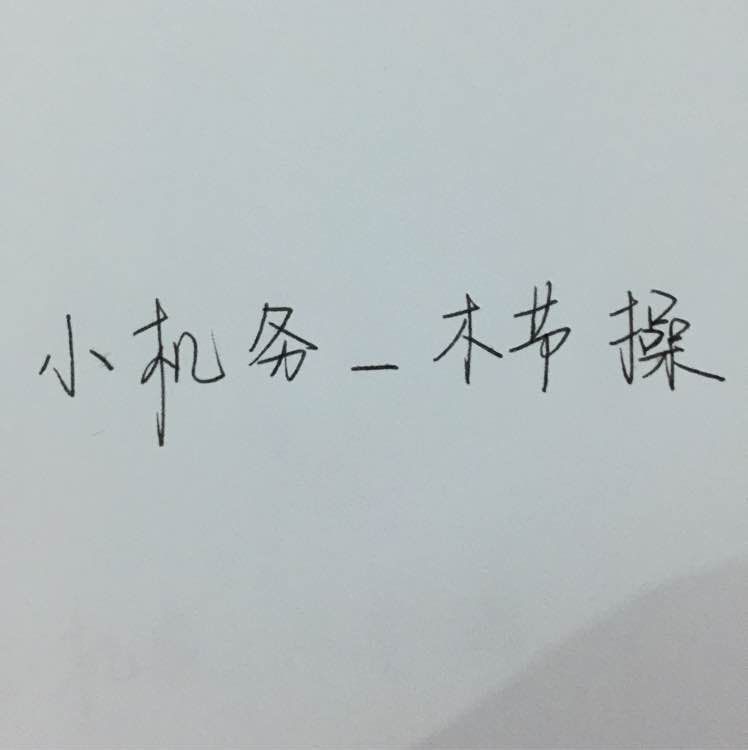 小机务_木节操